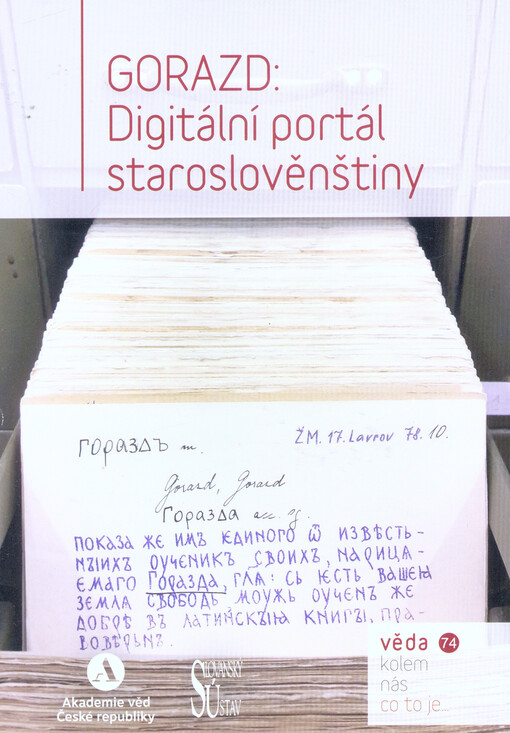 GORAZD:
Digitální portál
staroslověnštiny
гораздъ m.
ŽM. 17. Lavrov 78. 10.
Gorazd, Gorazd
Горазда acc. sg.
показа же имъ ѥдиного ѿ извѣсть-
ныихъ оученикъ своихъ, нарица-
ѥмаго Горазда, гл҃ꙗ: сь ѥсть вашеꙗ
земля свободь моужь оученъ же
добрѣ въ латиньскыꙗ книгы, пра-
вовѣрьнъ.
Akademie věd
České republiky
SLOVANSKÝ
ÚSTAV
věda 74
kolem
nás
co to je...